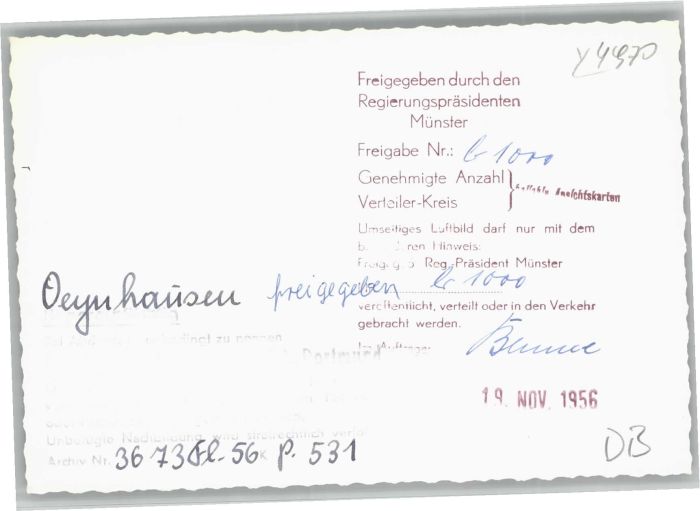 y 4970
Freigegeben durch den
Regierungspräsidenten
Münster
Freigabe Nr.: b 1000
Genehmigte Anzahl
Verteiler-Kreis
beliebig Ansichtskarten
Umseitiges Luftbild darf nur mit dem
Hinweis:
Reg.-Präsident Münster
b 1000
Oeynhausen freigegeben
veröffentlicht, verteilt oder in den Verkehr
gebracht werden.
Im Auftrage:
zu nennen
Dortmund
19. NOV. 1956
Unbefugte Nachbildung wird strafrechtlich
Archiv Nr. 3673 Fl.-56 K p. 531
DB